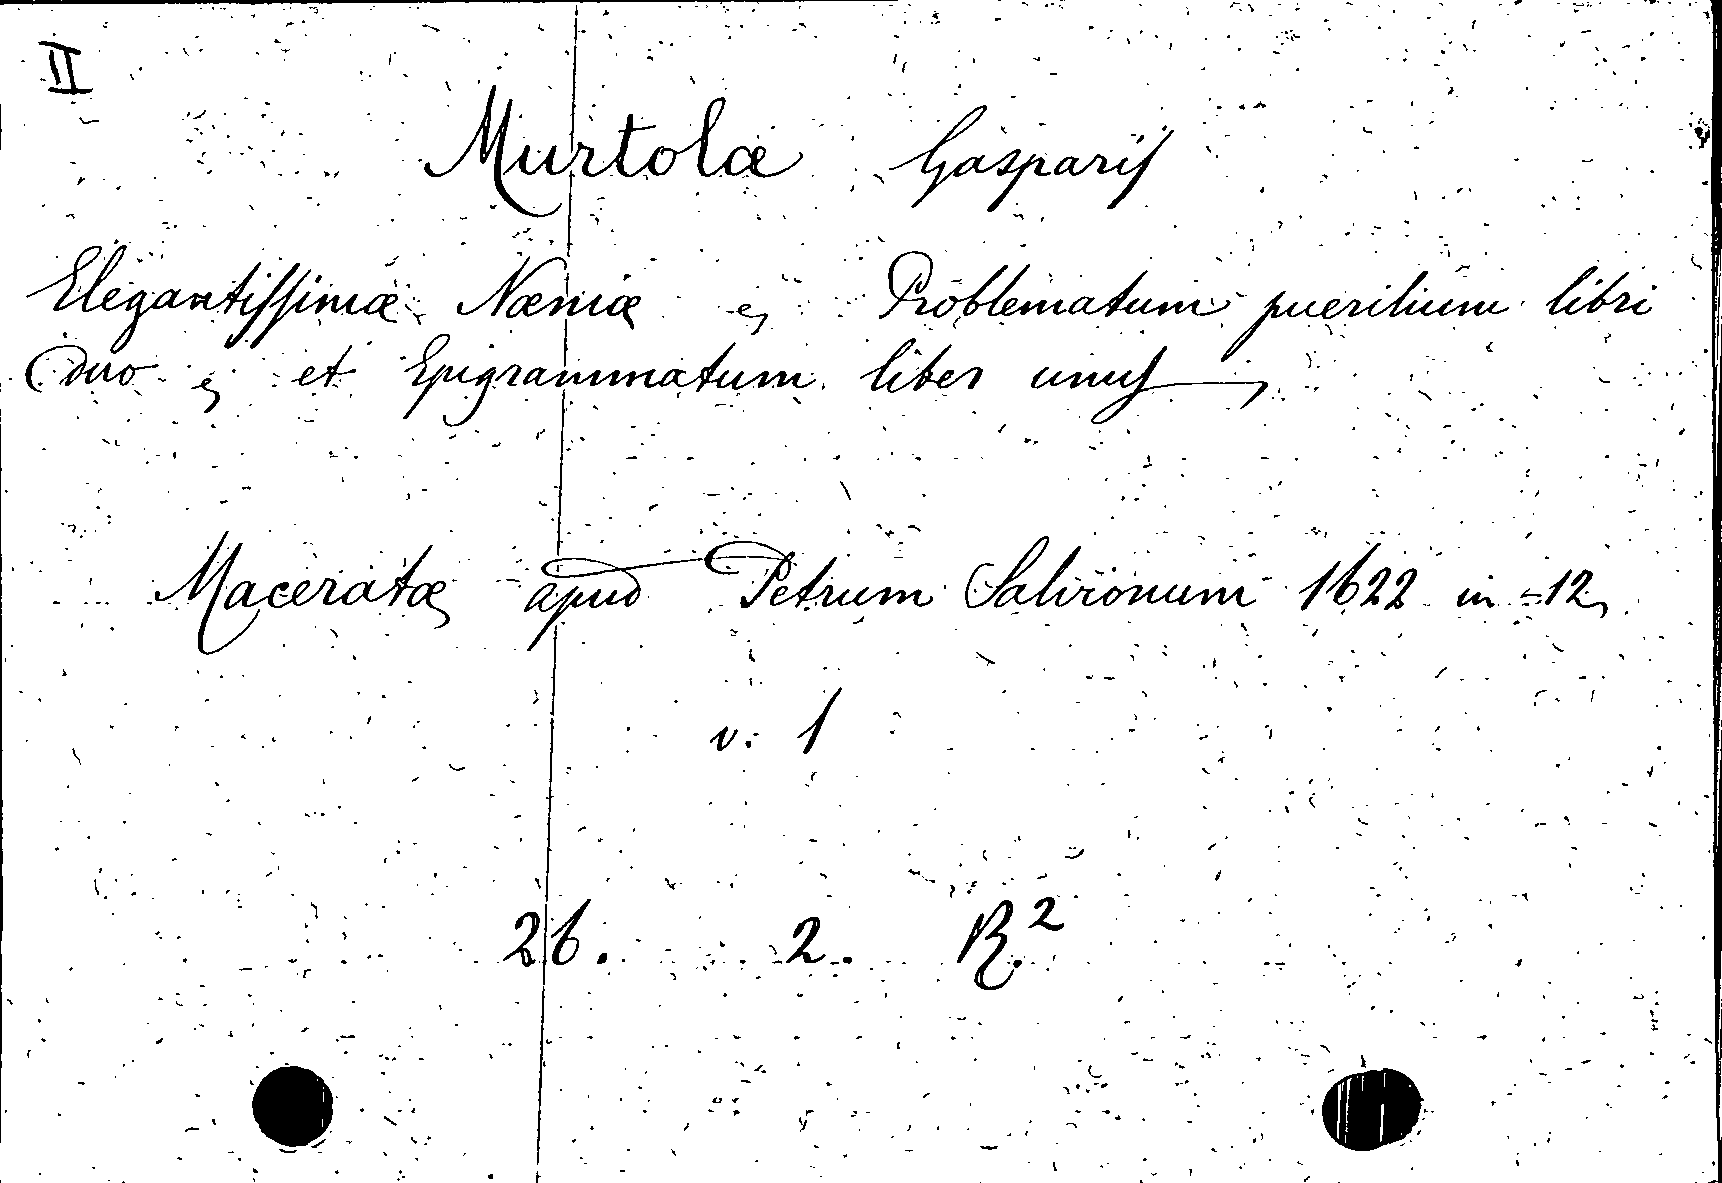 II
Murtolæ Gasparis
Elegantissimæ Næniæ, Problematum puerilium libri
duo, et Epigrammatum liber unus,
Maceratæ apud Petrum Salvionum 1622 in-12,
v. 1
26. 2. R.²